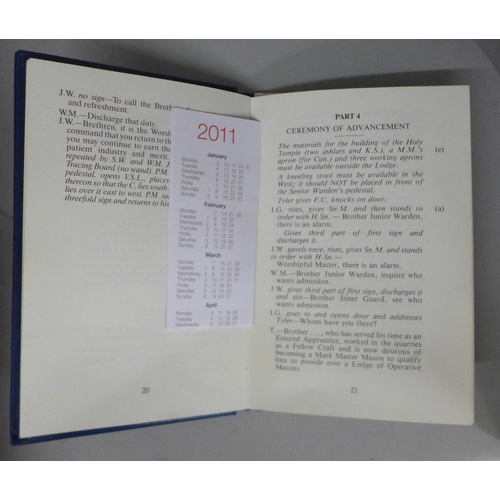 J.W. no sign—To call the Brethr
and refreshment.
W.M.—Discharge that duty.
J.W.—Brethren, it is the Worsh
command that you return to th
you may continue to earn the
patient industry and merit.
repeated by S.W. and W.M. J
Tracing Board (no wand). P.M.
pedestal, opens V.S.L., places
thereon so that the C. lies south
lies over it east to west. P.M. sa
threefold sign and returns to his
20
2011
January
Monday
Tuesday
Wednesday
Thursday
Friday
Saturday
Sunday
February
Monday
Tuesday
Wednesday
Thursday
Friday
Saturday
Sunday
March
Monday
Tuesday
Wednesday
Thursday
Friday
Saturday
Sunday
April
Monday
Tuesday
Wednesday
PART 4
CEREMONY OF ADVANCEMENT
The materials for the building of the Holy
Temple (two ashlars and K.S.), a M.M.'s (v)
apron (for Can.) and three working aprons
must be available outside the Lodge.
A kneeling stool must be available in the
West; it should NOT be placed in front of
the Senior Warden's pedestal.
Tyler gives F.C. knocks on door.
I.G. rises, gives Sn.M. and then stands to (a)
order with H.Sn. — Brother Junior Warden,
there is an alarm.
Gives third part of first sign and
discharges it.
J.W. gavels once, rises, gives Sn.M. and stands
to order with H.Sn.—
Worshipful Master, there is an alarm.
W.M.—Brother Junior Warden, inquire who
wants admission.
J.W. gives third part of first sign, discharges it
and sits—Brother Inner Guard, see who
wants admission.
I.G. goes to and opens door and addresses
Tyler—Whom have you there?
T.—Brother . . ., who has served his time as an
Entered Apprentice, worked in the quarries
as a Fellow Craft and is now desirous of
becoming a Mark Master Mason to qualify
him to preside over a Lodge of Operative
Masons.
21